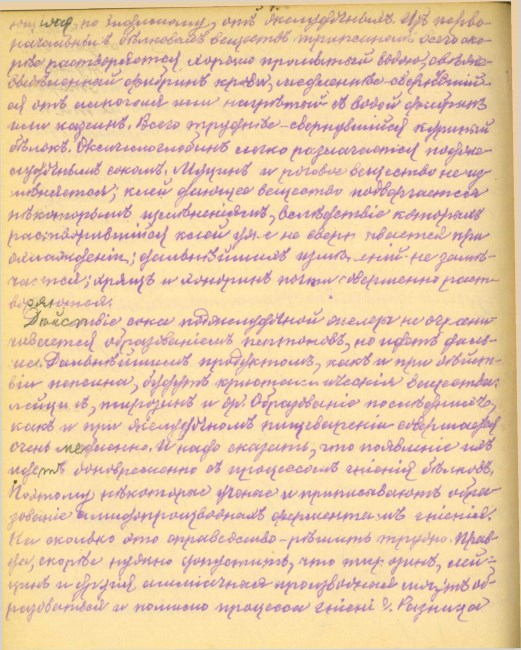 но, по видимому, отъ желудочныхъ. Изъ перво-
начальныхъ бѣлковыхъ веществъ трипсиномъ всего ско-
рѣе растворяется хорошо промытый водою, свѣже-
выдѣленный фибринъ крови, медленнѣе свернувшій-
ся отъ алкоголя или нагрѣтый въ водой фибринъ
или казеинъ. Всего труднѣе свернувшійся куриный
бѣлокъ. Оксигемоглобинъ легко разлагается поджe-
лудочнымъ сокомъ. Муцинъ и роговое вещество не из-
мѣняется; клей дающее вещество подвергается
нѣкоторымъ измѣненіямъ, вслѣдствіе которыхъ
растворившійся клей уже не свертывается при
охлажденіи; дальнѣйшихъ измѣненій не замѣ-
чается; хрящъ и хондринъ почти совершенно раст-
воряются.
Дѣйствіе сока поджелудочной железы не ограни-
чивается образованіемъ пептоновъ, но идетъ даль-
ше. Дальнѣйшимъ продуктомъ, какъ и при дѣйст-
віи пепсина, будутъ кристаллическія вещества:
лейцинъ, тирозинъ и др. Образованіе послѣднихъ,
какъ и при желудочномъ пищевареніи совершается
очень медленно. И надо сказать, что появленіе ихъ
идетъ одновременно съ процессомъ гніенія бѣлковъ.
Поэтому нѣкоторые ученые и приписываютъ обра-
зованіе амидопроизводныхъ ферментамъ гніенія.
На сколько это справедливо - рѣшить трудно. Прав-
да, скорѣе нужно допустить, что тирозинъ, лей-
цинъ и другія амміачныя производныя могутъ об-
разоваться и помимо процесса гніенія. Разница